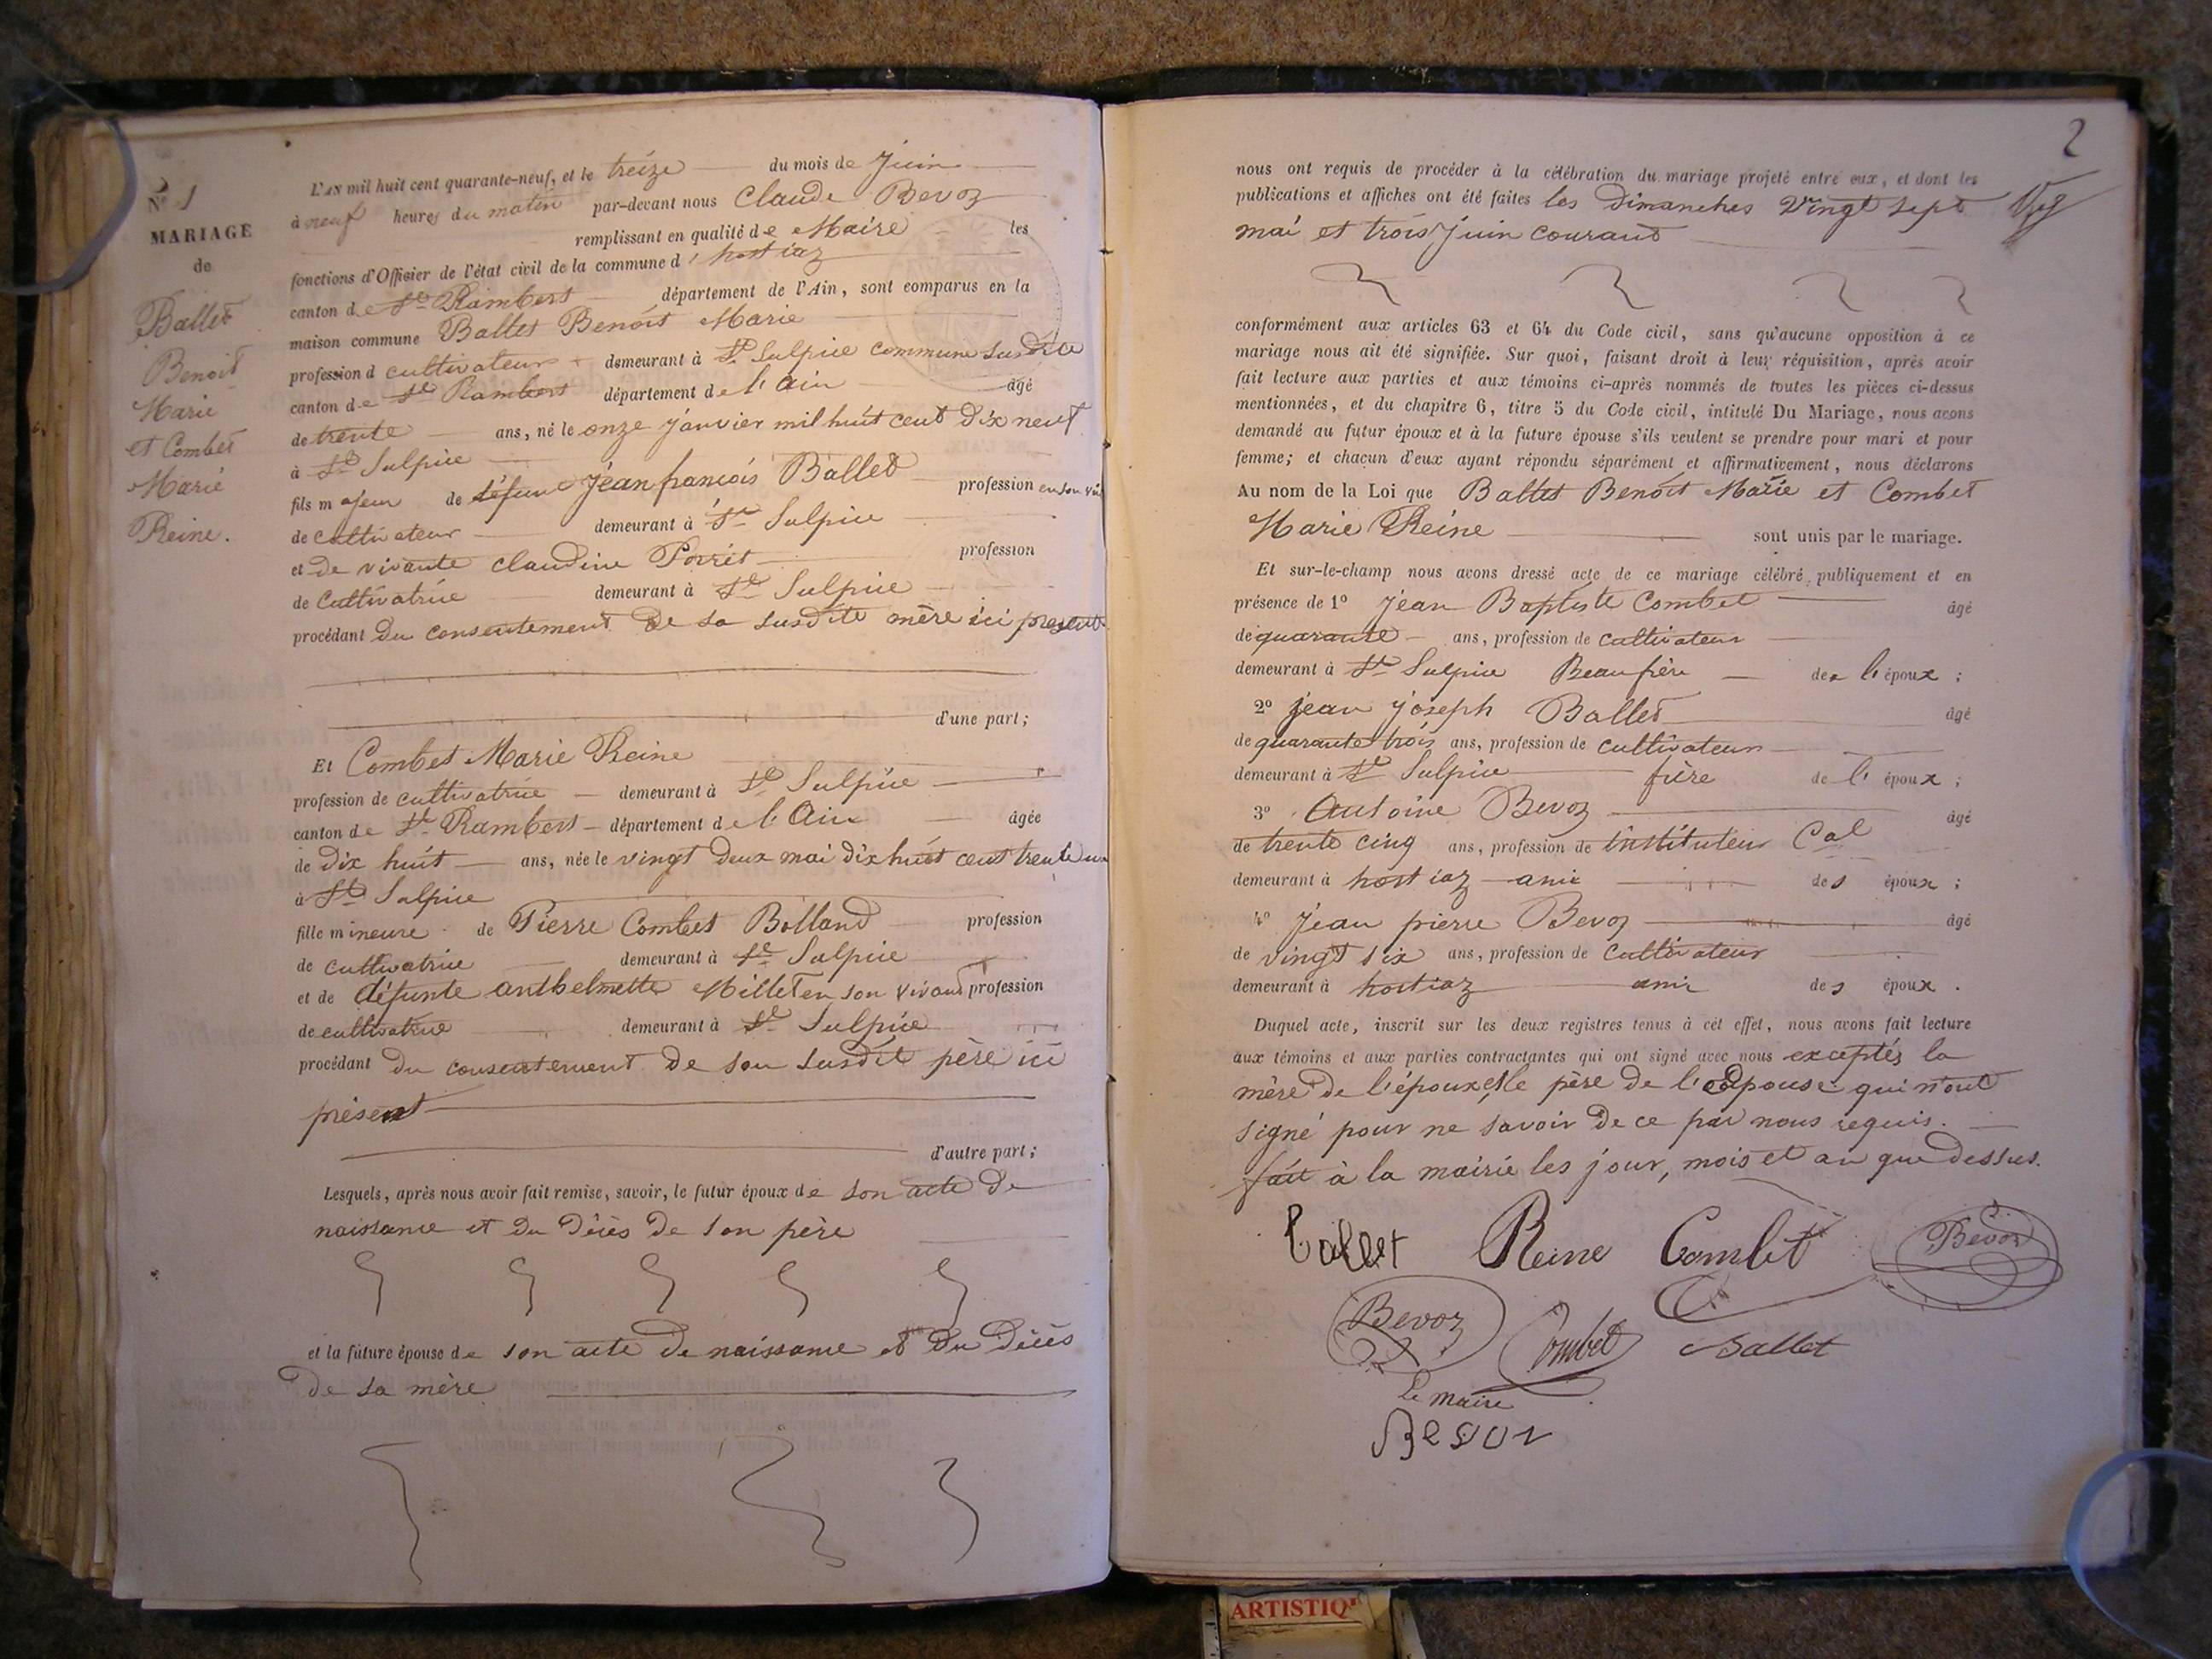 N° 1
MARIAGE
de
Ballet
Benoit
Marie
et Combet
Marie
Reine.
L'AN mil huit cent quarante-neuf, et le treize du mois de Juin
à neuf heures du matin par-devant nous Claude Bevoz
remplissant en qualité de Maire les
fonctions d'Officier de l'état civil de la commune d'hostiaz
canton de St Rambert département de l'Ain, sont comparus en la
maison commune Ballet Benoit Marie
profession d cultivateur demeurant à St Sulpice commune susdite
canton de St Rambert département de l'Ain âgé
de trente ans, né le onze janvier mil huit cent dix neuf
à St Sulpice
fils majeur de défunt Jean francois Ballet profession en son viv
de cultivateur demeurant à St Sulpice
et de vivante claudine Porret profession
de cultivatrice demeurant à St Sulpice
procédant du consentement de sa susdite mère ici present
d'une part;
Et Combet Marie Reine
profession de cultivatrice demeurant à St Sulpice
canton de St Rambert département de l'Ain âgée
de dix huit ans, née le vingt deux mai dix huit cent trente un
à St Sulpice
fille mineure de Pierre Combet Bolland profession
de cultivatrice demeurant à St Sulpice
et de défunte anthelmette Millet en son vivant profession
de cultivatrice demeurant à St Sulpice
procédant du consentement de son susdit père ici
présent
d'autre part;
Lesquels, après nous avoir fait remise, savoir, le futur époux de son acte de
naissance et du décès de son père
et la future épouse de son acte de naissance et du décès
de sa mère
2
nous ont requis de procéder à la célébration du mariage projeté entre eux, et dont les
publications et affiches ont été faites les dimanches vingt sept
mai et trois Juin courant
conformément aux articles 63 et 64 du Code civil, sans qu'aucune opposition à ce
mariage nous ait été signifiée. Sur quoi, faisant droit à leur réquisition, après avoir
fait lecture aux parties et aux témoins ci-après nommés de toutes les pièces ci-dessus
mentionnées, et du chapitre 6, titre 5 du Code civil, intitulé Du Mariage, nous avons
demandé au futur époux et à la future épouse s'ils veulent se prendre pour mari et pour
femme; et chacun d'eux ayant répondu séparément et affirmativement, nous déclarons
Au nom de la Loi que Ballet Benoit Marie et Combet
Marie Reine sont unis par le mariage.
Et sur-le-champ nous avons dressé acte de ce mariage célébré publiquement et en
présence de 1° Jean Baptiste Combet âgé
de quarante ans, profession de cultivateur
demeurant à St Sulpice Beau frère de l'époux;
2° jean joseph Ballet âgé
de quarante trois ans, profession de cultivateur
demeurant à St Sulpice frère de l'époux;
3° Antoine Bevoz âgé
de trente cinq ans, profession de instituteur Cal
demeurant à hostiaz ami des époux;
4° Jean pierre Bevoz âgé
de vingt six ans, profession de cultivateur
demeurant à hostiaz ami des époux.
Duquel acte, inscrit sur les deux registres tenus à cet effet, nous avons fait lecture
aux témoins et aux parties contractantes qui ont signé avec nous exceptés la
mère de l'époux et le père de l'Epouse qui n'ont
signé pour ne savoir de ce par nous requis.
fait à la mairie les jour, mois et an que dessus.
ballet Reine Combet Bevoz
Bevoz Combet Ballet
Le maire
Bevoz
ARTISTIQ